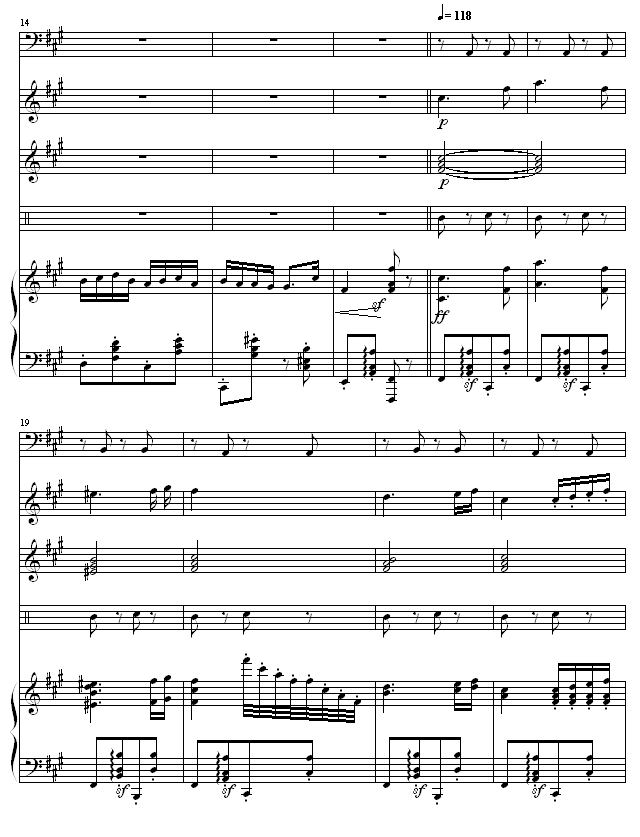 14
♩= 118
p
p
sf
ff
sf
sf
19
sf
sf
sf
sf